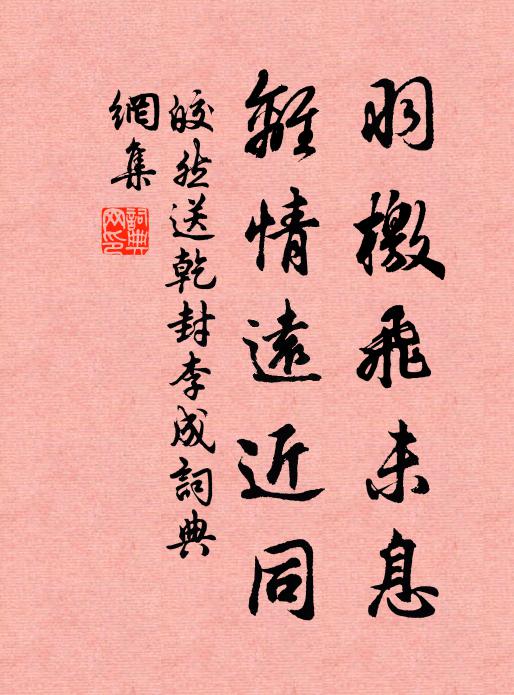 羽檄飛未息
離情遠近同
皎然送乾封李成詞典
網集
詞典網印